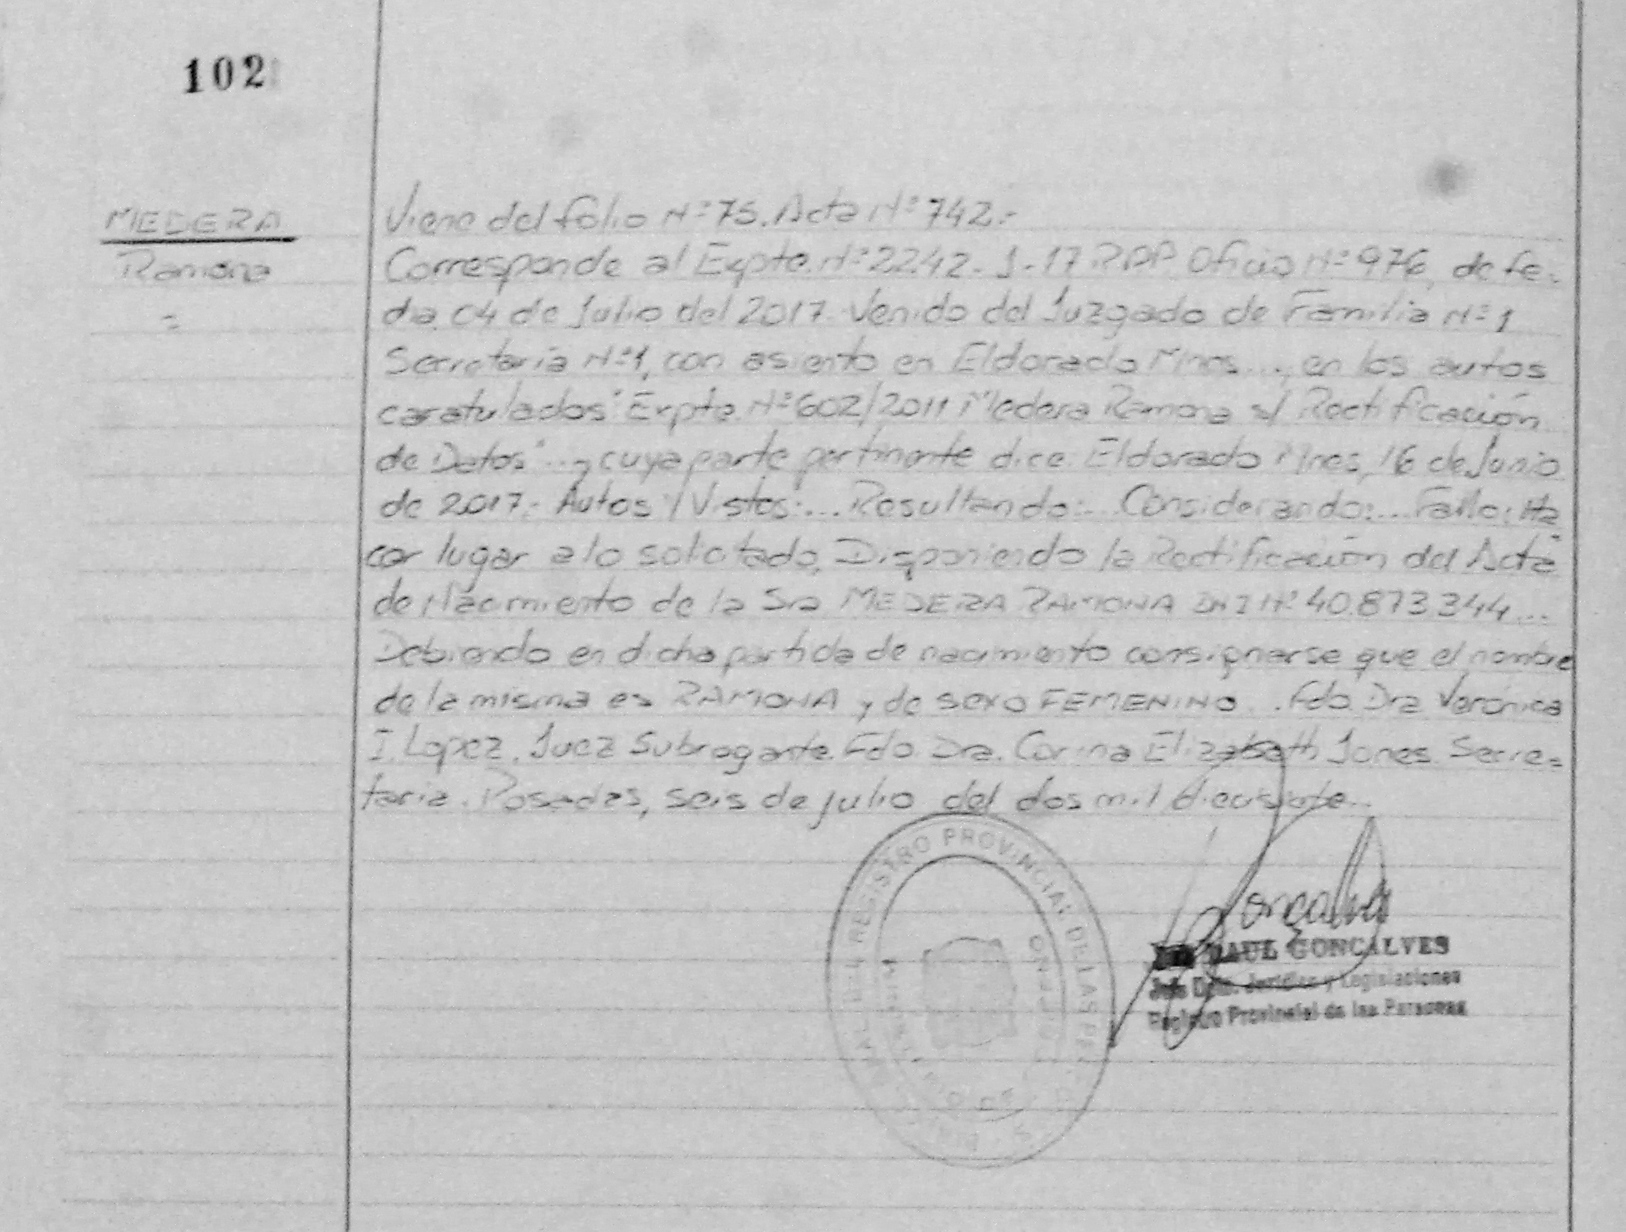 102
MEDERA
Ramona
=
Viene del folio Nº 75. Acta Nº 742.-
Corresponde al Expte. Nº 2242-J-17 RPP Oficio Nº 976, de fe-
cha 04 de Julio del 2017. Venido del Juzgado de Familia Nº 1
Secretaría Nº 1, con asiento en Eldorado Mnes..., en los autos
caratulados "Expte. Nº 602/2011 Medera Ramona s/ Rectificación
de Datos"... y cuya parte pertinente dice. Eldorado Mnes, 16 de Junio
de 2017.- Autos y Vistos:... Resultando:... Considerando:... Fallo: Ha
cer lugar a lo solicitado, Disponiendo la Rectificación del Acta
de Nacimiento de la Sra MEDERA RAMONA DNI Nº 40.873.344...
Debiendo en dicha partida de nacimiento consignarse que el nombre
de la misma es RAMONA y de sexo FEMENINO... Fdo. Dra Verónica
I. Lopez. Juez Subrogante. Fdo. Dra. Corina Elizabeth Jones Secre=
taria. Posadas, seis de julio del dos mil diecisiete...
REGISTRO PROVINCIAL DE LAS
Goncalves
RAUL GONCALVES
Jefe Dpto. Jurídico y Legislaciones
Registro Provincial de las Personas